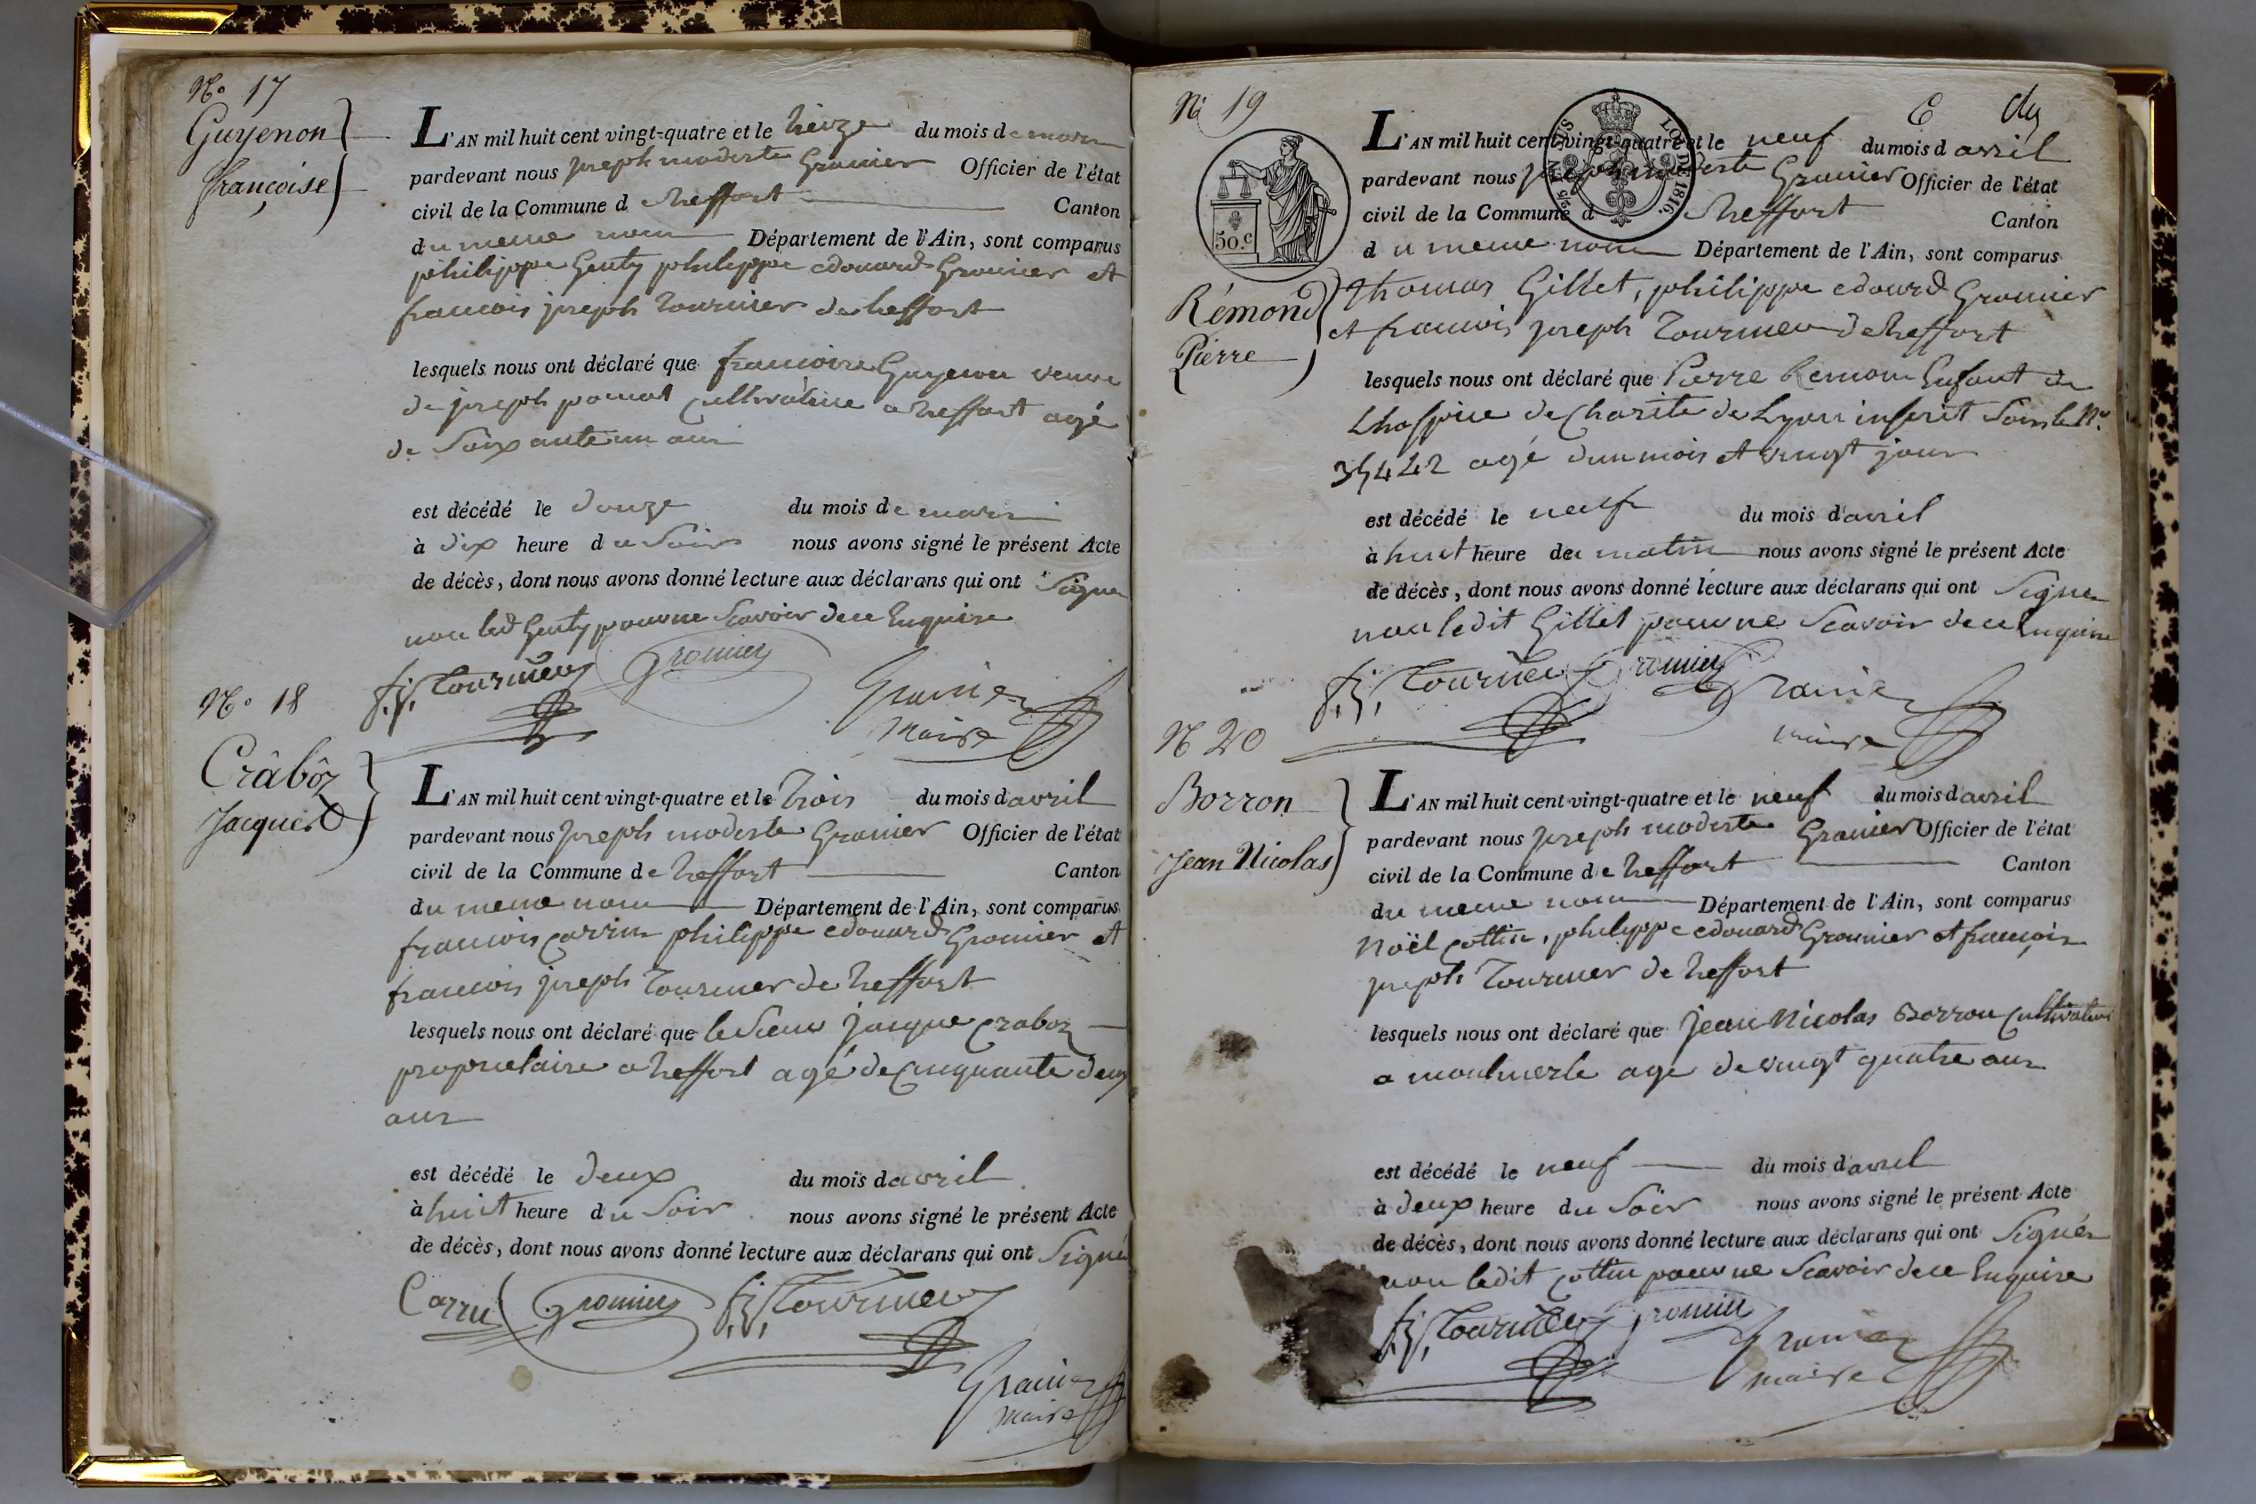 No 17
Guyenon
françoise
L'AN mil huit cent vingt-quatre et le treize du mois de mars
pardevant nous joseph modeste Gromier Officier de l'état
civil de la Commune d treffort Canton
du meme nom Département de l'Ain, sont comparus
philippe Genty philippe edouard Gromier et
francois joseph Tournier de treffort
lesquels nous ont déclaré que francoise Guyenon veuve
de joseph cultivatrice a treffort agé
de Soixante un ans
est décédé le douze du mois de mars
à dix heure du Soir nous avons signé le présent Acte
de décès, dont nous avons donné lecture aux déclarans qui ont Signé
non led Genty pour ne Scavoir de ce Enquise
f. j. Tournier Gromier
Maire
No 18
Crâbôz
Jacques
L'AN mil huit cent vingt-quatre et le Trois du mois d avril
pardevant nous joseph modeste Gromier Officier de l'état
civil de la Commune de treffort Canton
du meme nom Département de l'Ain, sont comparus
francois carru philippe edouard Gromier et
francois joseph Tournier de treffort
lesquels nous ont déclaré que le Sieur jacque craboz
proprietaire a treffort agé de cinquante deux
ans
est décédé le deux du mois d avril
à huit heure du Soir nous avons signé le présent Acte
de décès, dont nous avons donné lecture aux déclarans qui ont Signé
Carru Gromier f. j. Tournier
Maire
N 19
50.c
LOI DE 1816.
Rémond
Pierre
L'AN mil huit cent vingt-quatre et le neuf du mois d avril
pardevant nous joseph modeste Gromier Officier de l'état
civil de la Commune d treffort Canton
d u meme nom Département de l'Ain, sont comparus
thomas Gillet, philippe edouard Gromier
et francois joseph Tournier de treffort
lesquels nous ont déclaré que Pierre Remon Enfant de
Lhospice de Charité de Lyon inscrit Sous le No.
agé dun mois et vingt jour
est décédé le neuf du mois d'avril
à huit heure du matin nous avons signé le présent Acte
de décès, dont nous avons donné lecture aux déclarans qui ont Signé
non ledit Gillet pour ne Scavoir de ce Enquise
f. j. Tournier Gromier
maire
N 20
Borron
Jean Nicolas
L'AN mil huit cent vingt-quatre et le neuf du mois d'avril
pardevant nous joseph modeste Gromier Officier de l'état
civil de la Commune de treffort Canton
du meme nom Département de l'Ain, sont comparus
Noël cottin, philippe edouard Gromier et françois
joseph Tournier de treffort
lesquels nous ont déclaré que jean Nicolas Borron cultivateur
a agé de vingt quatre ans
est décédé le neuf du mois d'avril
à deux heure du Soir nous avons signé le présent Acte
de décès, dont nous avons donné lecture aux déclarans qui ont Signé
non ledit cottin pour ne Scavoir de ce Enquise
f. j. Tournier Gromier
maire